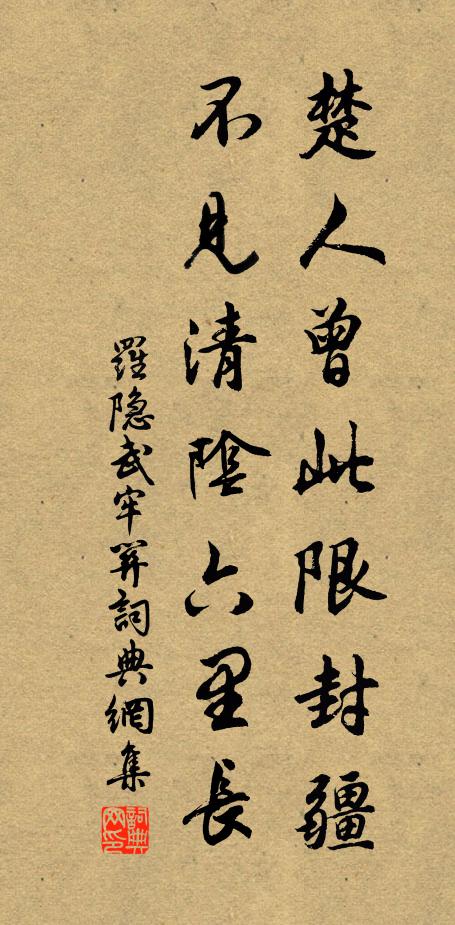 楚人曾此限封疆
不見清陰六里長
羅隱武牢關詞典網集
詞典網印